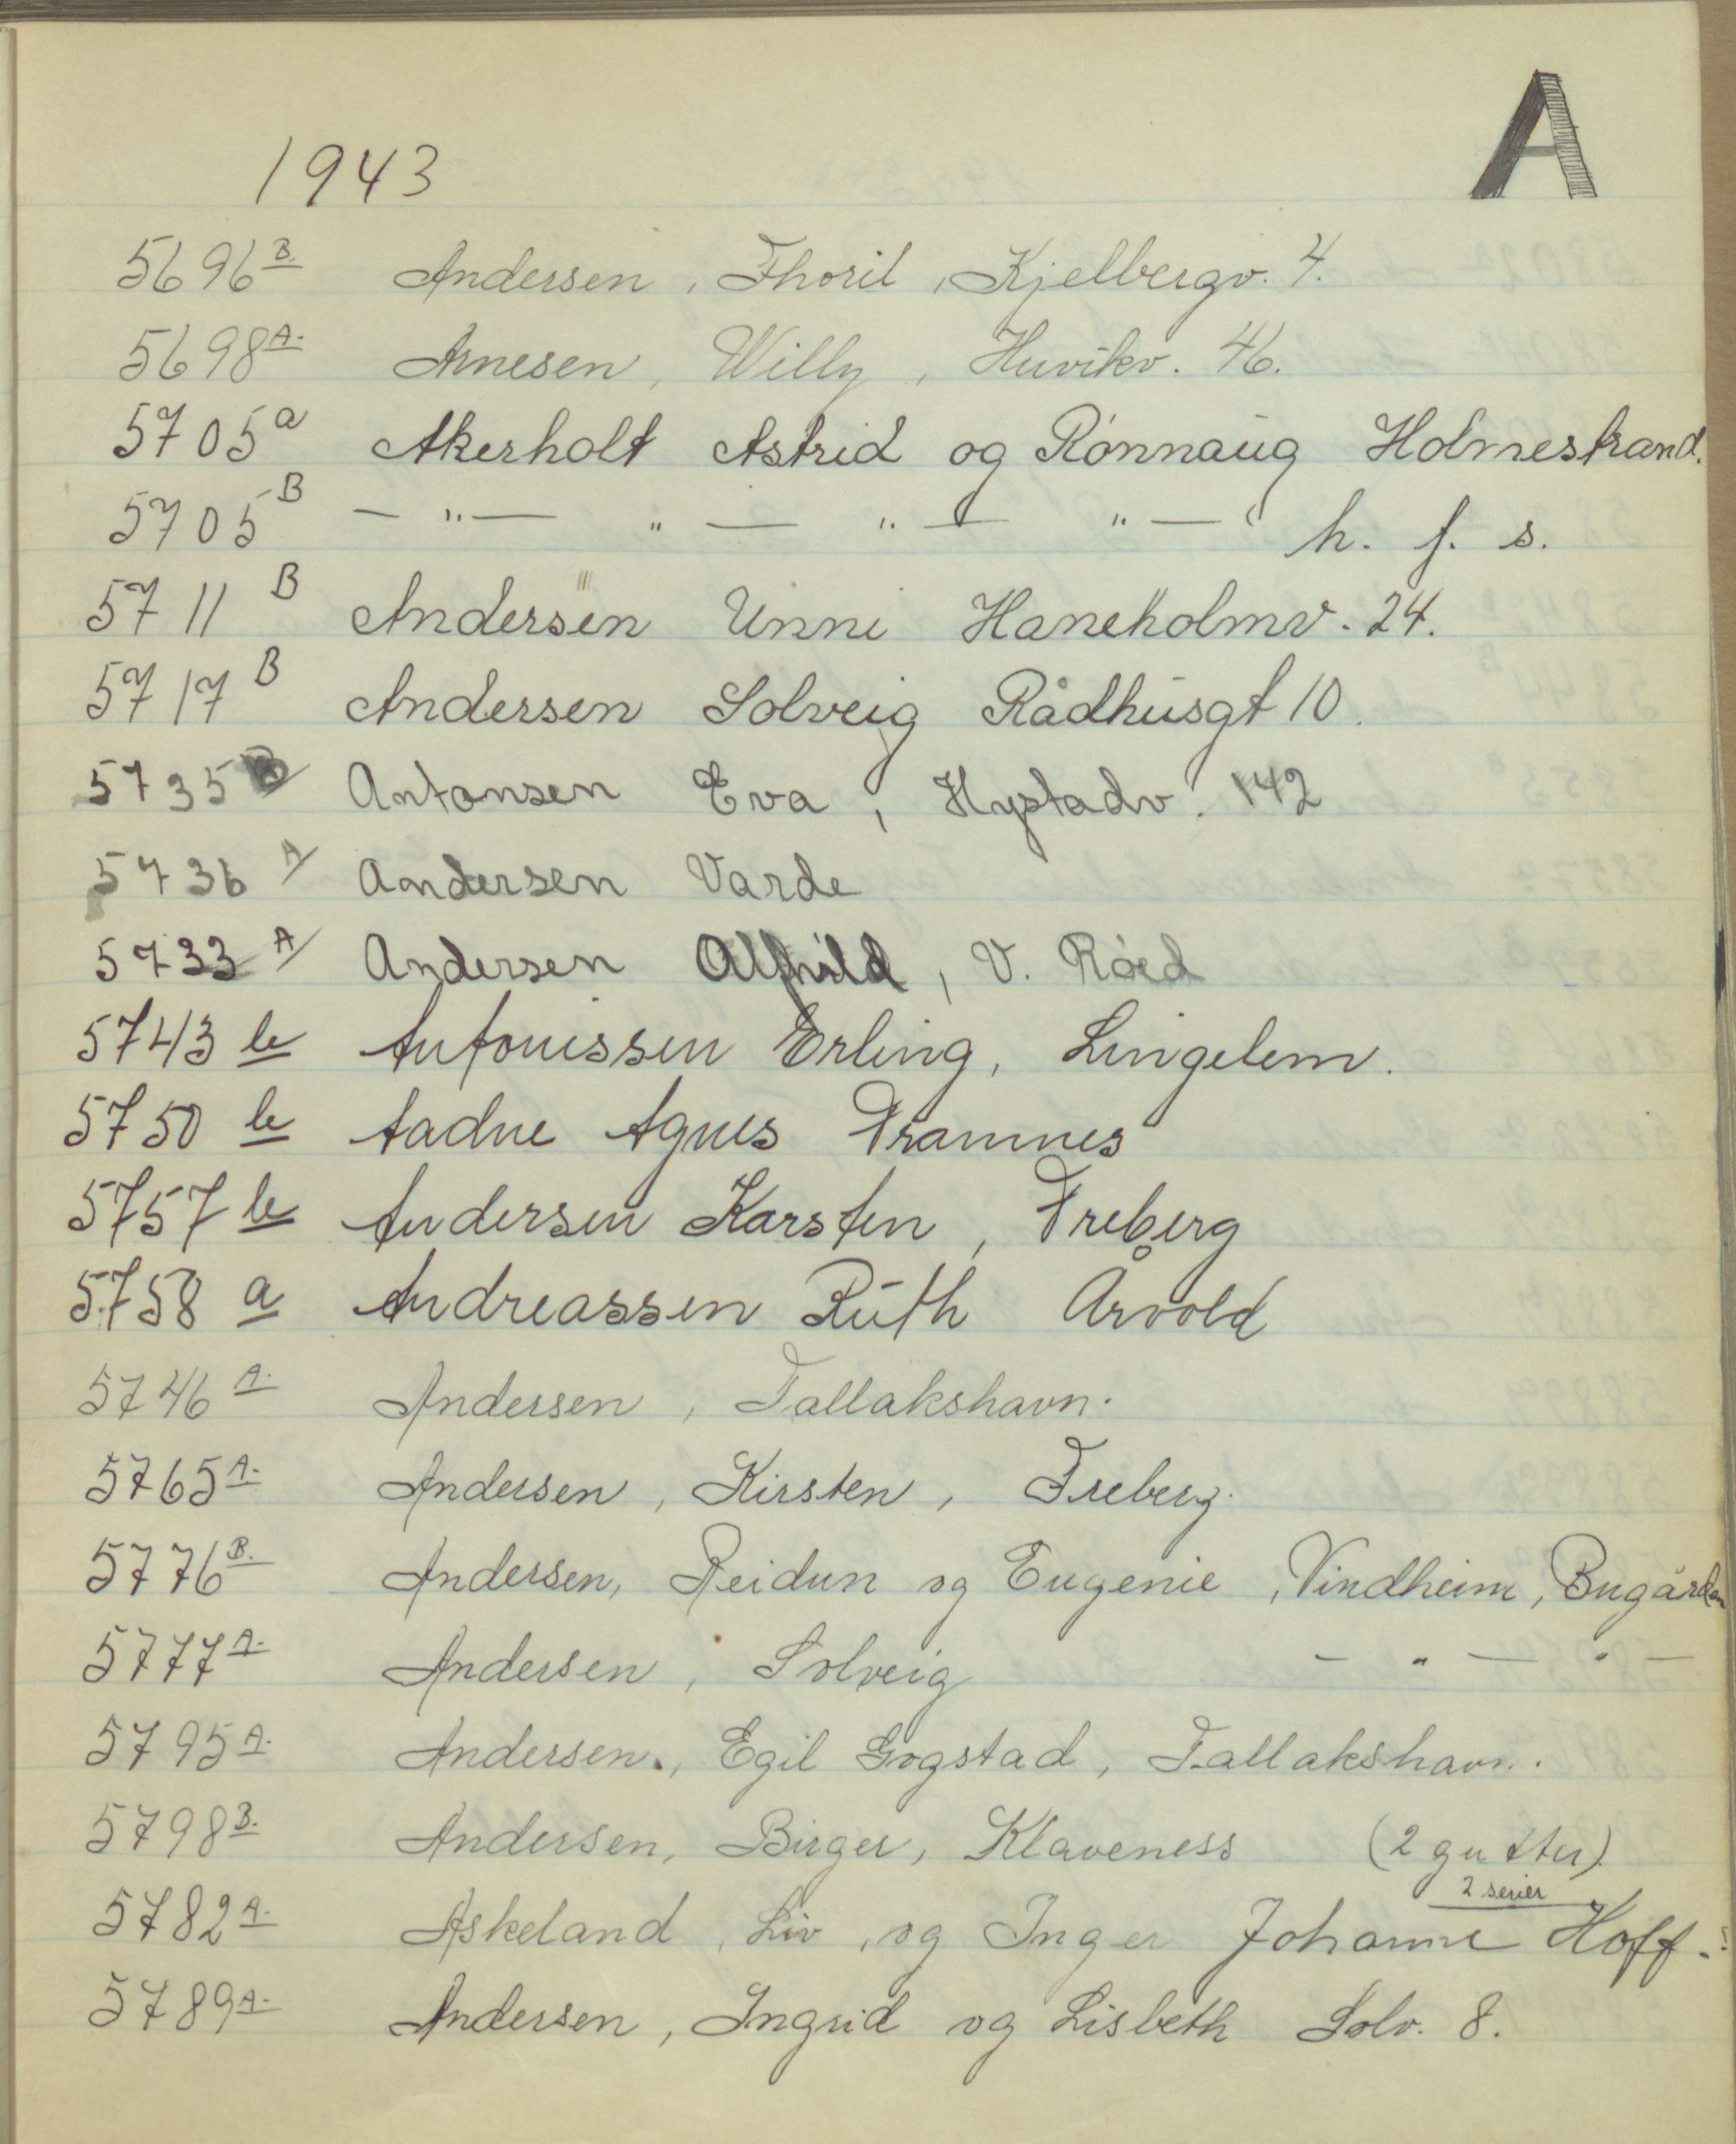 A
1943
5696 B. Andersen, Thoril, Kjelbergv. 4.
5698 A. Arnesen, Willy, Huvikv. 46.
5705 a Akerholt Astrid og Rönnaug Holmestrand.
5705 B — " — " — " — " — " h. f. s.
5711 B Andersen Unni Haneholmv. 24.
5717 B Andersen Solveig Rådhusgt 10.
5735 B Antonsen Eva, Hystadv. 142
5736 A Andersen Varde
5733 A Andersen Alfhild, V. Röed
5743 b Antonissen Erling, Lingelem.
5750 b Aadne Agnes Framnes
5757 b Andersen Karsten, Freberg
5758 a Andreassen Ruth Årvold
5746 A. Andersen, Tallakshavn.
5765 A. Andersen, Kirsten, Freberg.
5776 B. Andersen, Reidun og Eugenie, Vindheim, Bugården
5777 A. Andersen, Solveig — " — " —
5795 A. Andersen., Egil Gogstad, Tallakshavn.
5798 B. Andersen, Birger, Klaveness (2 gutter)
2 serier
5782 A. Askeland, Liv, og Inger Johanne Hoff.
5789 A. Andersen, Ingrid og Lisbeth Solv. 8.